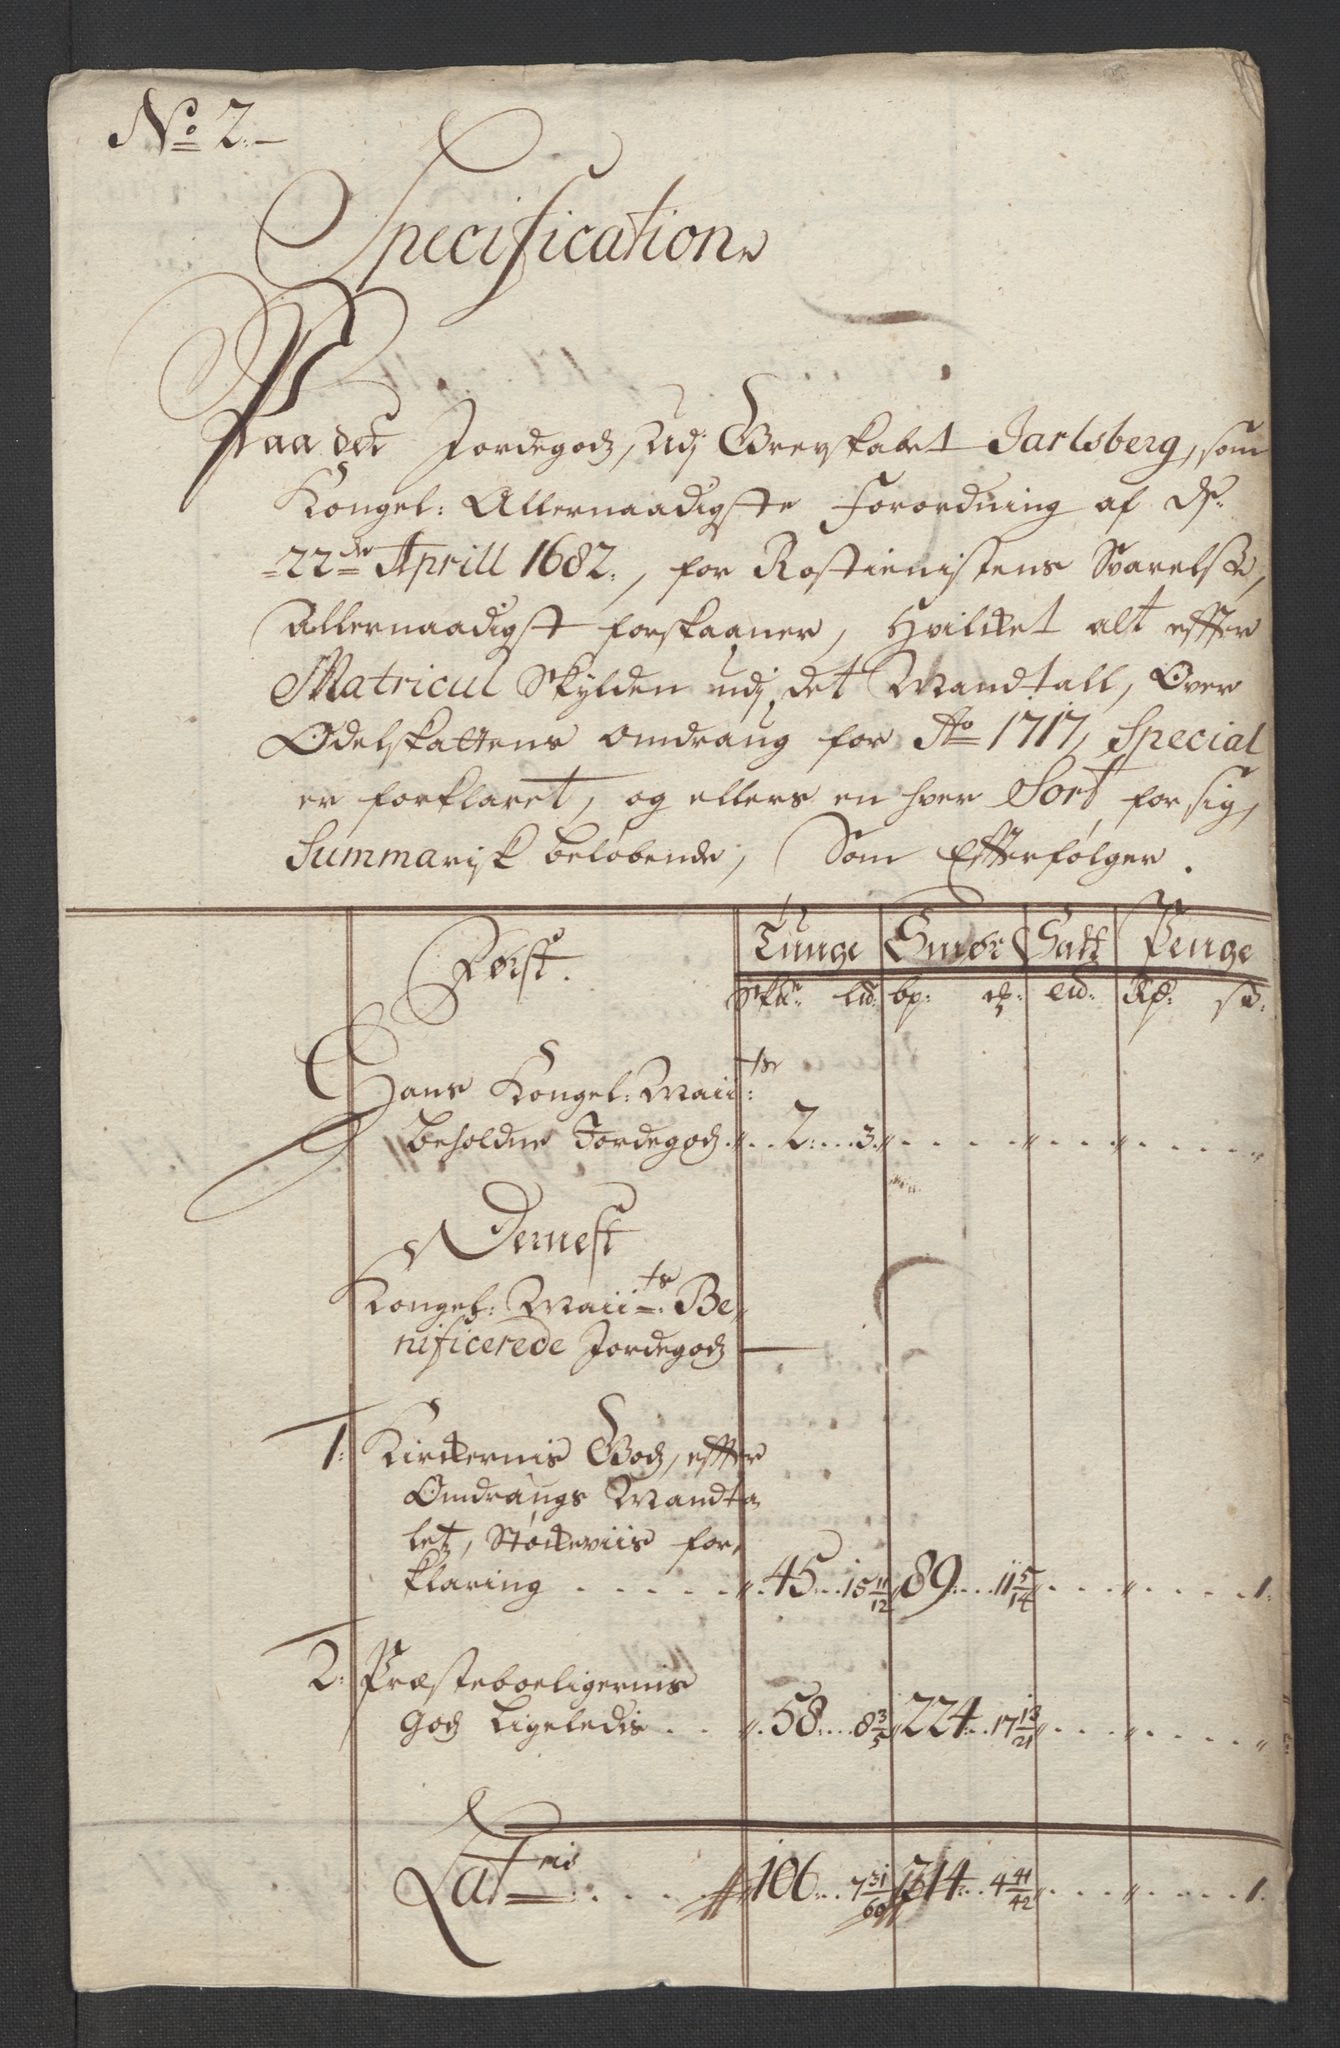 No 2.
Specification
Paa det Jordegodz, udj Grevskabet Jarlsberg, som
Kongel: Allernaadigste Forordning af d.
22de Aprill 1682, for Rostienistens Svarelse,
Allernaadigst forskaaner, Hvilcket alt effter
Matricul Skylden udj det Mandtall, Over
Odelskattens omdrang for Ao 1717, Special
er forklaret, og ellers en hver Sort for sig,
Summarisk beløbende, Som Efterfølger.
Først. Tunge Smør Salt Penge
Skd: lid: bp: lid: Rd: sk:
Hans Kongel: Maiits:
beholdne Jordegodz 2: 3
Dernest
Kongel: Maiits: Be,
nificerede Jordegodz
1: Kirckernis Godz, effter
Omdrangs Mandta
let, Støckeviis for,
klaring 45: 15 11/12 89: 11 5/14 1:
2: Præsteboeligernis
Godz Ligeledis 58: 8 3/5 224: 17 13/21
Lateris 106: 7 31/60 314: 4 41/42 1.